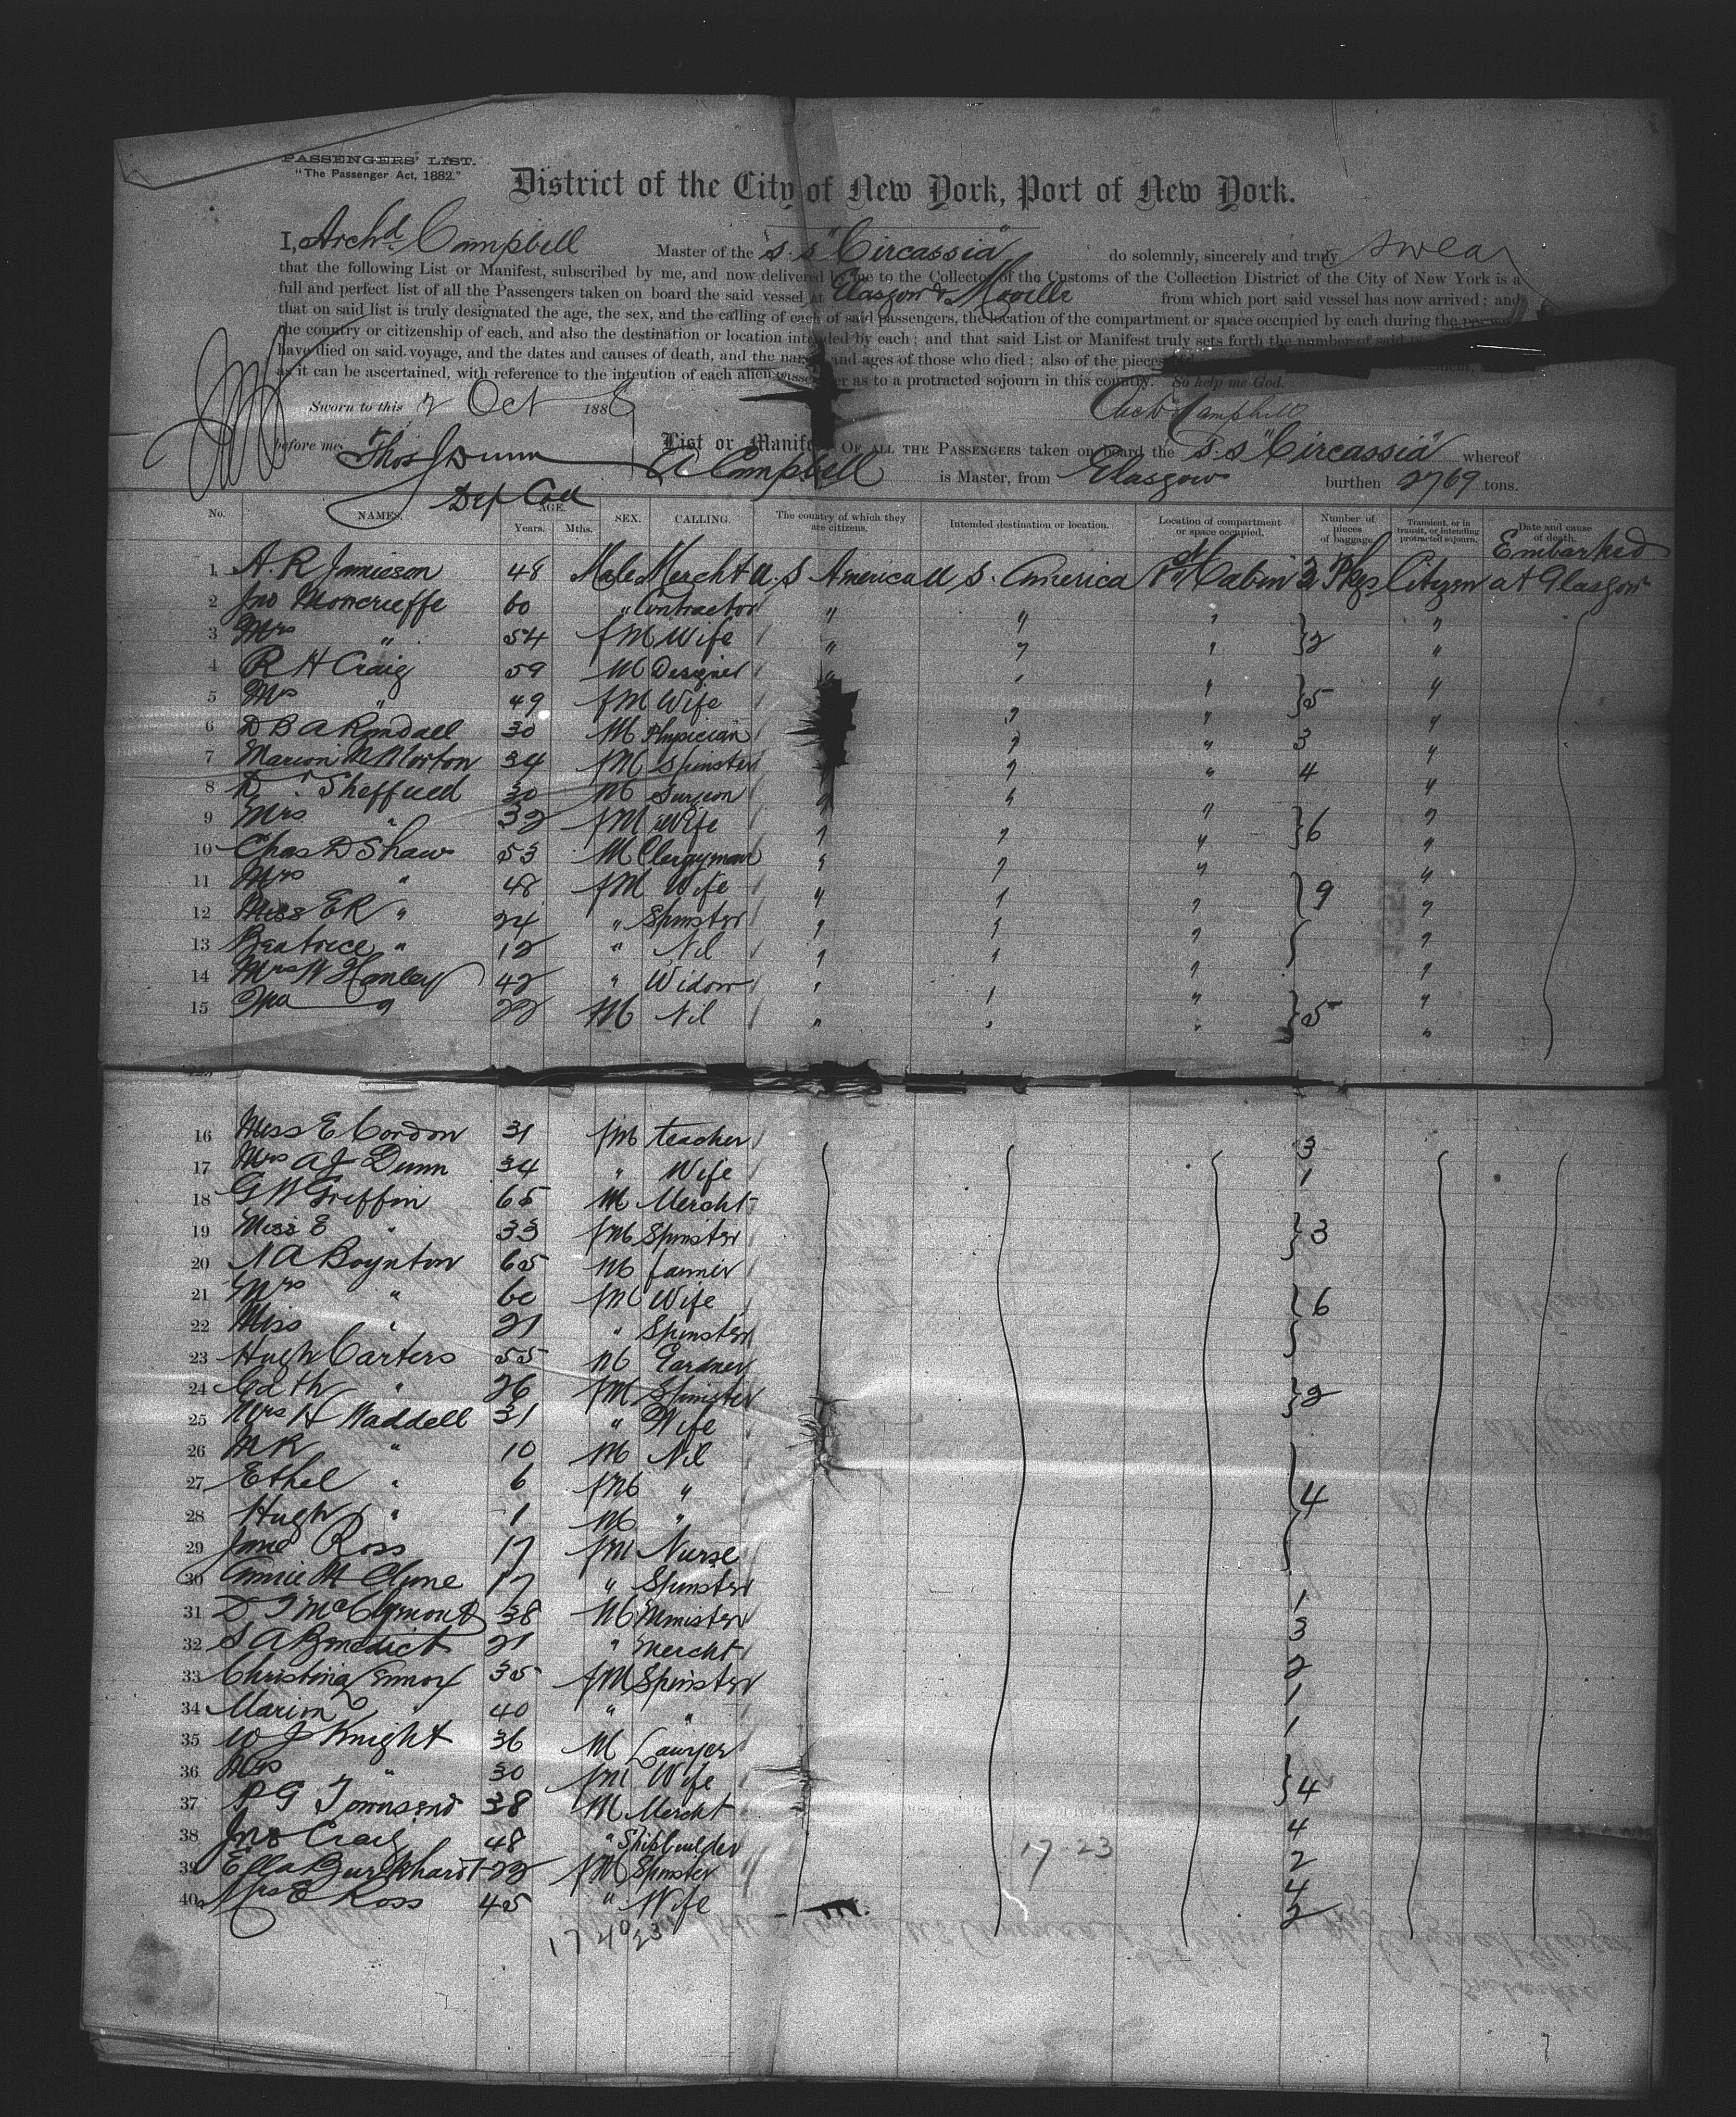 PASSENGERS' LIST.
"The Passenger Act, 1882."
District of the City of New York, Port of New York.
I, Archd Campbell Master of the S.S "Circassia" do solemnly, sincerely and truly swear
that the following List or Manifest, subscribed by me, and now delivered by me to the Collector of the Customs of the Collection District of the City of New York is a
full and perfect list of all the Passengers taken on board the said vessel at Glasgow & Moville from which port said vessel has now arrived; and
that on said list is truly designated the age, the sex, and the calling of each of said passengers, the location of the compartment or space occupied by each during the
the country or citizenship of each, and also the destination or location intended by each; and that said List or Manifest truly sets forth the number of said
have died on said voyage, and the dates and causes of death, and the names and ages of those who died; also of the pieces
as it can be ascertained, with reference to the intention of each alien passenger as to a protracted sojourn in this country. So help me God.
Sworn to this 2 Oct 188 Archd Campbell
before me, Thos J Dunn
Dep Coll
List or Manifest OF ALL THE PASSENGERS taken on board the S.S "Circassia" whereof
A Campbell is Master, from Glasgow burthen 2769 tons.
No. NAMES. AGE. Years. Mths. SEX. CALLING. The country of which they are citizens. Intended destination or location. Location of compartment or space occupied. Number of pieces of baggage. Transient, or in transit, or intending protracted sojourn. Date and cause of death.
Embarked
1 A. R Jamieson 48 Male Mercht U. S America U S. America 1st Cabin 2 Pkgs Citizen at Glasgow
2 Jno Moncrieffe 60 " Contractor " " " "
3 Mrs " 54 fM Wife " " " } 2 "
4 R H Craig 59 M Designer " " " "
5 Mrs " 49 fM Wife " " } 5 "
6 D B A Randall 30 M Physician " " 3 "
7 Marion M Norton 34 fM Spinster " " " 4 "
8 Dr Sheffield 30 M Surgeon " " " "
9 Mrs " 32 fM Wife " " " } 6 "
10 Chas D Shaw 53 M Clergyman " " " "
11 Mrs " 48 fM Wife " " " } 9 "
12 Miss E R " 24 " Spinster " " " "
13 Beatrice " 12 " Nil " " " "
14 Mrs W Hanley 42 " Widow " " " "
15 " 22 M Nil " " " } 5 "
16 Miss E Cordon 31 fM teacher 3
17 Mrs A J Dunn 34 " Wife 1
18 G W Griffin 65 M Mercht
19 Miss E " 33 fM Spinster } 3
20 N A Boynton 65 M farmer
21 Mrs " 60 fM Wife } 6
22 Miss " 21 " Spinster
23 Hugh Carters 55 M Gardner
24 Cath " 26 fM Spinster } 2
25 Mrs H Waddell 31 " Wife
26 M R " 10 M Nil
27 Ethel " 6 fM " 4
28 Hugh " 1 M "
29 Jane Ross 17 fM Nurse
30 Annie M Clune 17 " Spinster 1
31 D J McClymont 38 M Minister 3
32 S A Benedict 21 " Mercht 2
33 Christina Lennox 35 fM Spinster 1
34 Marion " 40 " " 1
35 W J Knight 36 M Lawyer
36 Mrs " 30 fM Wife } 4
37 P G Townsend 38 M Mercht 4
38 Jno Craig 48 " Shipbuilder 2
39 Ella Burkhardt 22 fM Spinster 4
40 Mrs E Ross 45 " Wife 2
17 23
17 40 23